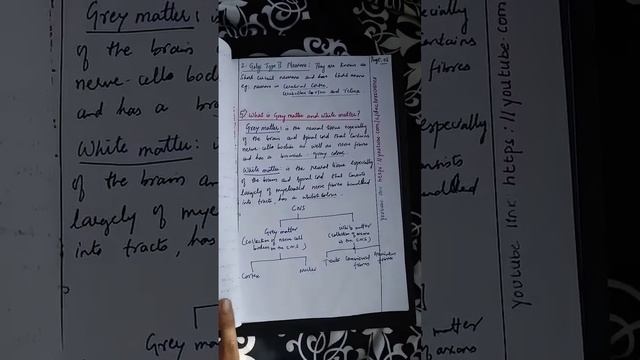 2. Golgi Type II Neurons : They are known as
Short circuit neurons and has short axons
eg: neurons in Cerebral Cortex,
Cerebellar Cortex and retina
Page: 06
5) What is Grey matter and White matter?
Grey matter : is the neural tissue especially
of the brain and spinal cord that contains
nerve-cells bodies as well as nerve fibres
and has a brownish gray colour.
White matter : is the neural tissue especially
of the brain and spinal cord that consists
largely of myelinated nerve fibres bundled
into tracts, has a whitish colour.
CNS
Grey matter
(collection of nerve cell
bodies in the C.N.S)
White matter
(collection of axons
in the C.N.S)
Cortex
Nuclei
Tracts
Commissural
fibres
Association
fibres
youtube link https://youtube.com/
Grey matter :
of the brain
nerve-cells bod
and has a b
White matter :
of the brain an
largely of mye
into tracts, has
Grey ma
especially
contains
especially
consists
bundled
matter
axons
youtube link https://youtube.com